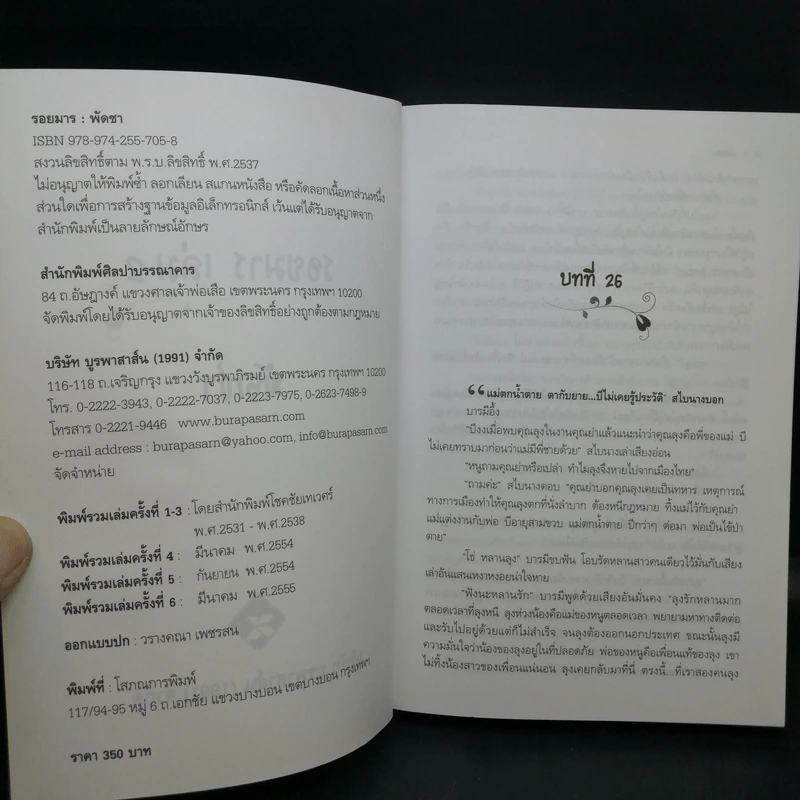 รอยมาร : พัดชา
ISBN 978-974-255-705-8
สงวนลิขสิทธิ์ตาม พ.ร.บ.ลิขสิทธิ์ พ.ศ.2537
ไม่อนุญาตให้พิมพ์ซ้ำ ลอกเลียน สแกนหนังสือ หรือคัดลอกเนื้อหาส่วนหนึ่ง
ส่วนใดเพื่อการสร้างฐานข้อมูลอิเล็กทรอนิกส์ เว้นแต่ได้รับอนุญาตจาก
สำนักพิมพ์เป็นลายลักษณ์อักษร
สำนักพิมพ์ศิลปาบรรณาคาร
84 ถ.อัษฎางค์ แขวงศาลเจ้าพ่อเสือ เขตพระนคร กรุงเทพฯ 10200
จัดพิมพ์โดยได้รับอนุญาตจากเจ้าของลิขสิทธิ์อย่างถูกต้องตามกฎหมาย
บริษัท บูรพาสาส์น (1991) จำกัด
116-118 ถ.เจริญกรุง แขวงวังบูรพาภิรมย์ เขตพระนคร กรุงเทพฯ 10200
โทร. 0-2222-3943, 0-2222-7037, 0-2223-7975, 0-2623-7498-9
โทรสาร 0-2221-9446 www.burapasarn.com
e-mail address : burapasarn@yahoo.com, info@burapasarn.com
จัดจำหน่าย
พิมพ์รวมเล่มครั้งที่ 1-3 : โดยสำนักพิมพ์โชคชัยเทเวศร์
พ.ศ.2531 - พ.ศ.2538
พิมพ์รวมเล่มครั้งที่ 4 : มีนาคม พ.ศ.2554
พิมพ์รวมเล่มครั้งที่ 5 : กันยายน พ.ศ.2554
พิมพ์รวมเล่มครั้งที่ 6 : มีนาคม พ.ศ.2555
ออกแบบปก : วรางคณา เพชรสน
พิมพ์ที่ : โสภณการพิมพ์
117/94-95 หมู่ 6 ถ.เอกชัย แขวงบางบอน เขตบางบอน กรุงเทพฯ
ราคา 350 บาท
บทที่ 26
“แม่ตกน้ำตาย ตากับยาย...บีไม่เคยรู้ประวัติ” สไบนางบอก
บารมีอึ้ง
“บีงงเมื่อพบคุณลุงในงานคุณย่าแล้วแนะนำว่าคุณลุงคือพี่ของแม่ บี
ไม่เคยทราบมาก่อนว่าแม่มีพี่ชายด้วย” สไบนางเล่าเสียงอ่อน
“หนูถามคุณย่าหรือเปล่า ทำไมลุงจึงหายไปจากเมืองไทย”
“ถามค่ะ” สไบนางตอบ “คุณย่าบอกคุณลุงเคยเป็นทหาร เหตุการณ์
ทางการเมืองทำให้คุณลุงตกที่นั่งลำบาก ต้องหนีกฎหมาย ทิ้งแม่ไว้กับคุณย่า
แม่แต่งงานกับพ่อ บีอายุสามขวบ แม่ตกน้ำตาย ปีกว่าๆ ต่อมา พ่อเป็นไข้ป่า
ตาย”
“โธ่ หลานลุง” บารมีขบฟัน โอบรัดหลานสาวคนเดียวไว้มั่นกับเสียง
เล่าอันแสนเหงาหงอยน่าใจหาย
“ฟังนะหลานรัก” บารมีพูดด้วยเสียงอันมั่นคง “ลุงรักหลานมาก
ตลอดเวลาที่ลุงหนี ลุงห่วงน้องคือแม่ของหนูตลอดเวลา พยายามหาทางติดต่อ
และรับไปอยู่ด้วยแต่ก็ไม่สำเร็จ จนลุงต้องออกนอกประเทศ ขณะนั้นลุงมี
ความมั่นใจว่าน้องของลุงอยู่ในที่ปลอดภัย พ่อของหนูคือเพื่อนแท้ของลุง เขา
ไม่ทิ้งน้องสาวของเพื่อนแน่นอน ลุงเคยกลับมาที่นี่ ตรงนี้...ที่เราสองคนลุง